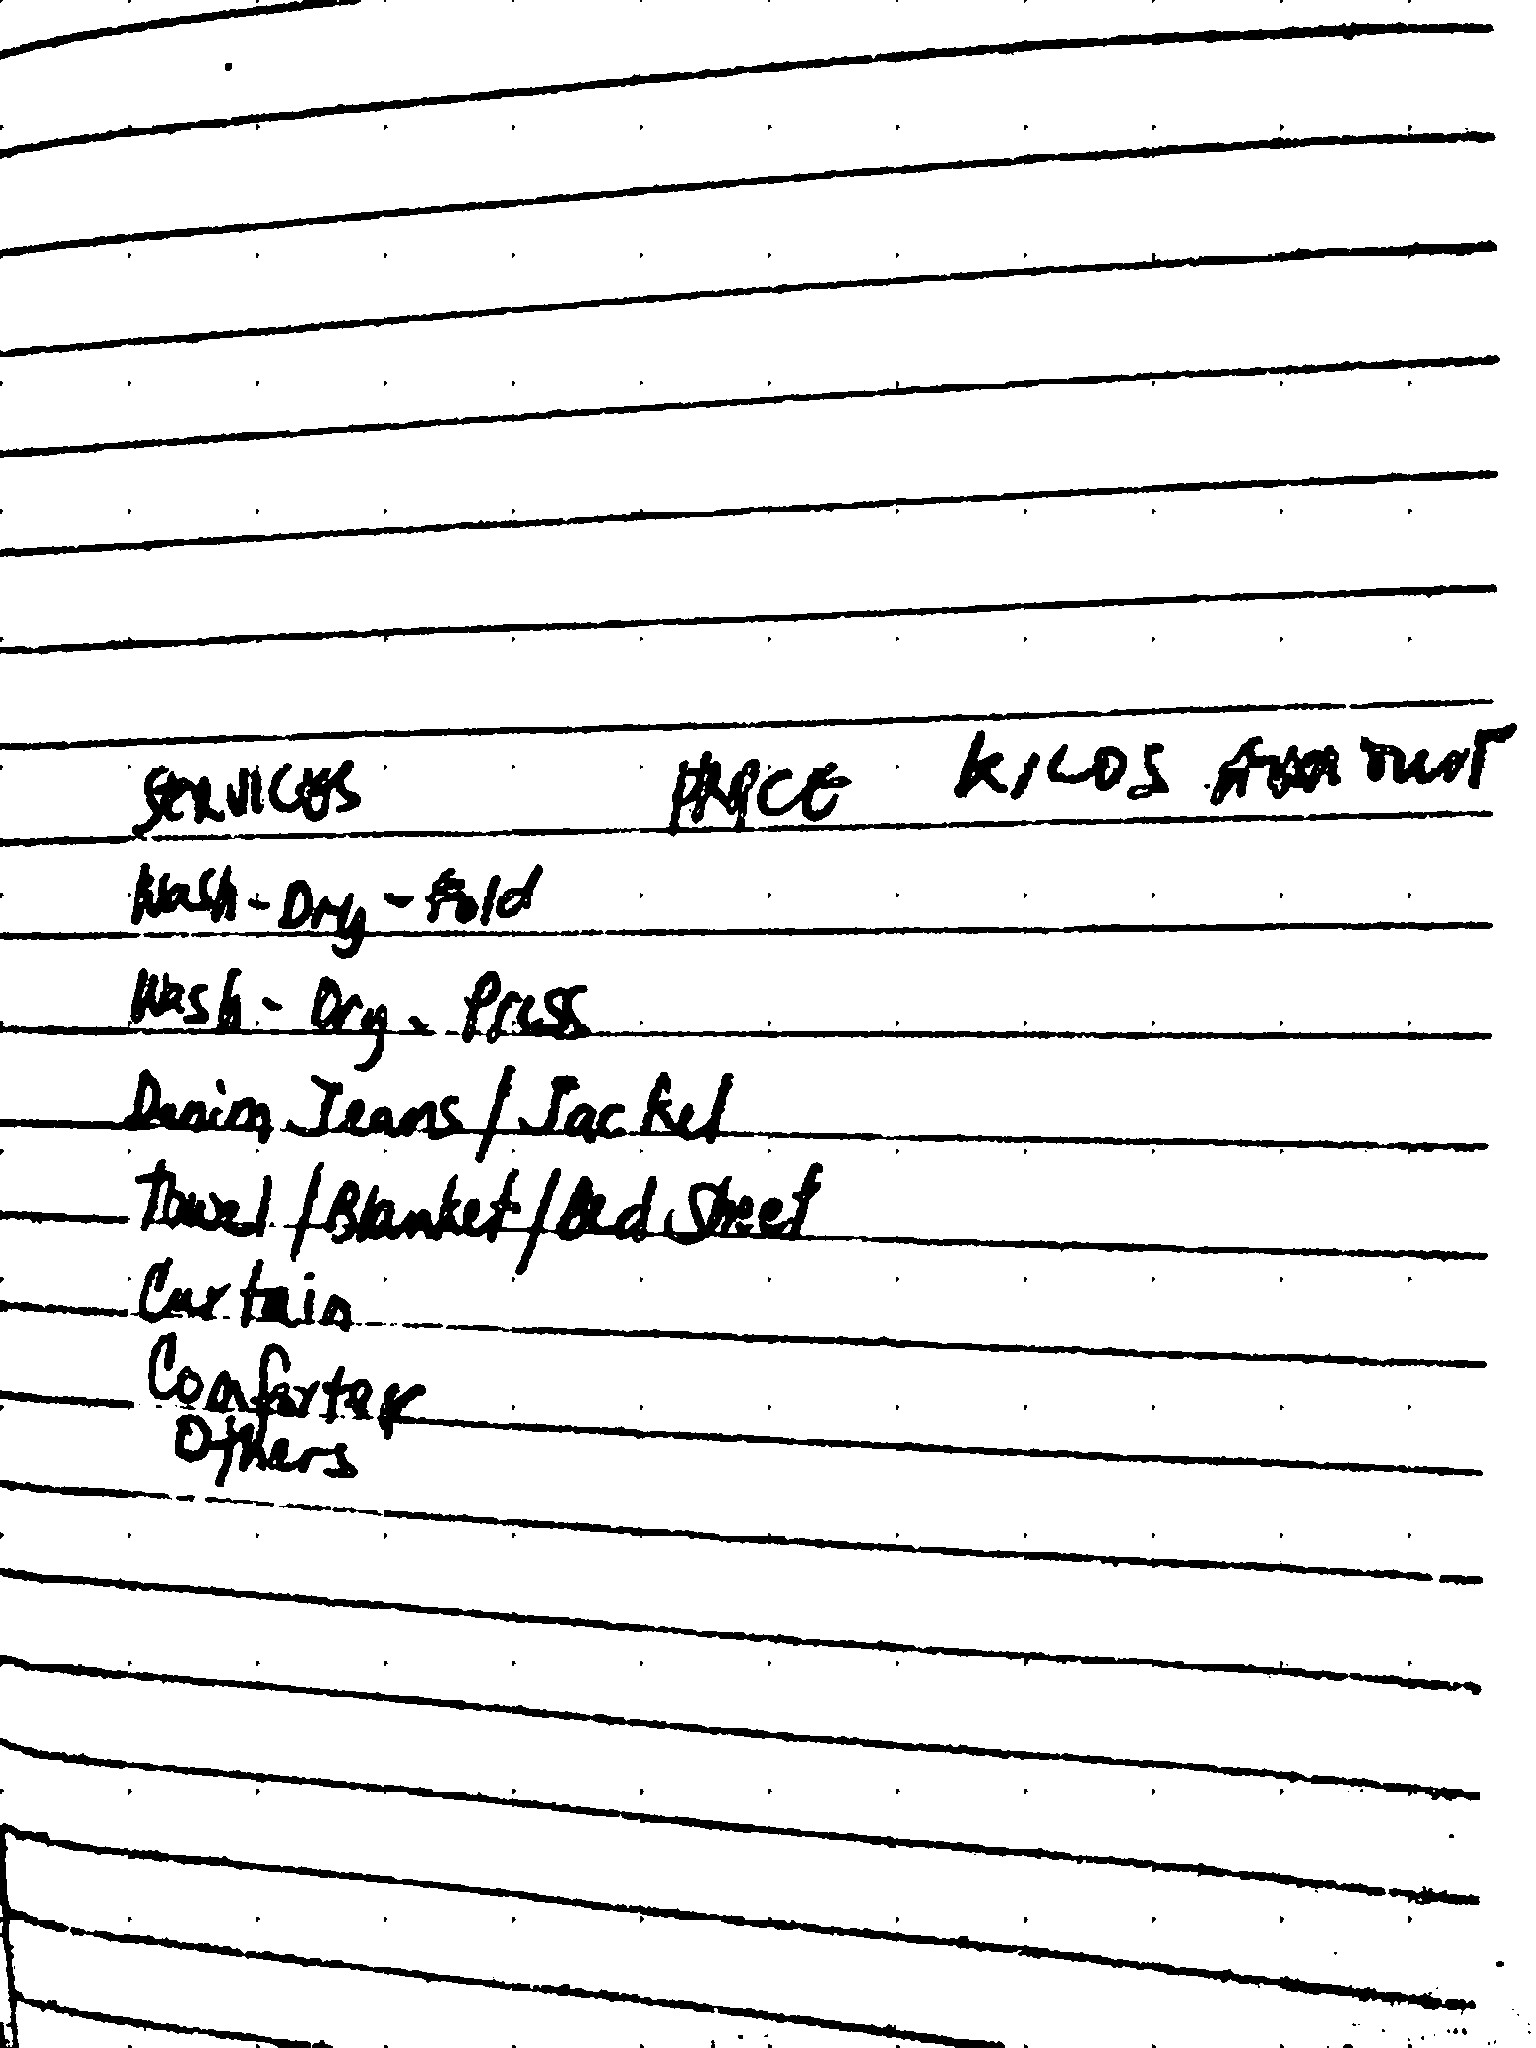 SERVICES PRICE KILOS AMOUNT
Wash - Dry - Fold
Wash - Dry - Press
Denim Jeans / Jacket
Towel / Blanket / Bed Sheet
Curtain
Comforter
Others